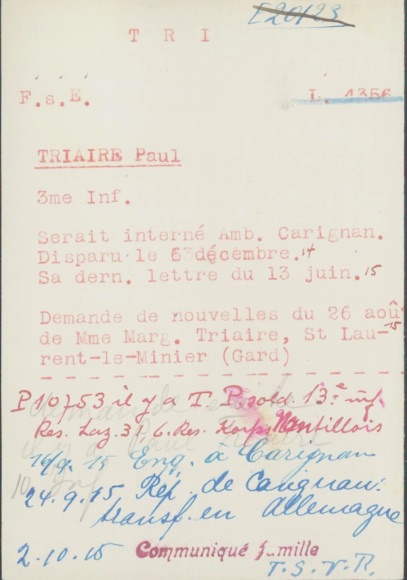 E 20/23
T R I
F.s.E.
L. 4356
TRIAIRE Paul
3me Inf.
Serait interné Amb. Carignan.
Disparu le 6 décembre.14
Sa dern. lettre du 13 juin.15
Demande de nouvelles du 26 aoû
15
de Mme Marg. Triaire, St Lau-
rent-le-Minier (Gard)
P 10753 il y a T. P. sold. 13e inf
Res. Laz. 31 6. Res. Korps Nantillois
16/9 15 Enq. à Carignan
24.9.15 Rép. de Carignan:
transf. en Allemagne
2.10.15 Communiqué famille
T.S.V.P.